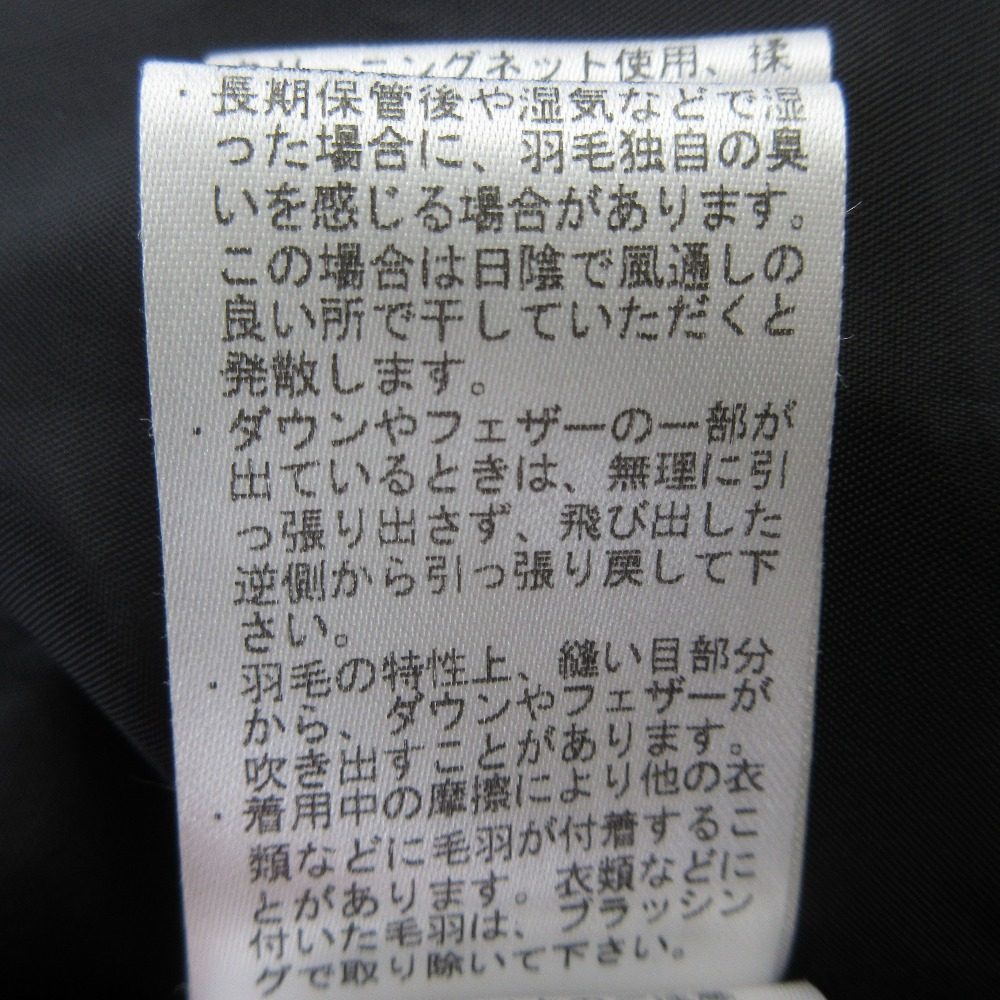 ングネット使用、揉
・長期保管後や湿気などで湿
った場合に、羽毛独自の臭
いを感じる場合があります。
この場合は日陰で風通しの
良い所で干していただくと
発散します。
・ダウンやフェザーの一部が
出ているときは、無理に引
っ張り出さず、飛び出した
逆側から引っ張り戻して下
さい。
・羽毛の特性上、縫い目部分
から、ダウンやフェザーが
吹き出すことがあります。
・着用中の摩擦により他の衣
類などに毛羽が付着するこ
とがあります。衣類などに
付いた毛羽は、ブラッシン
グで取り除いて下さい。